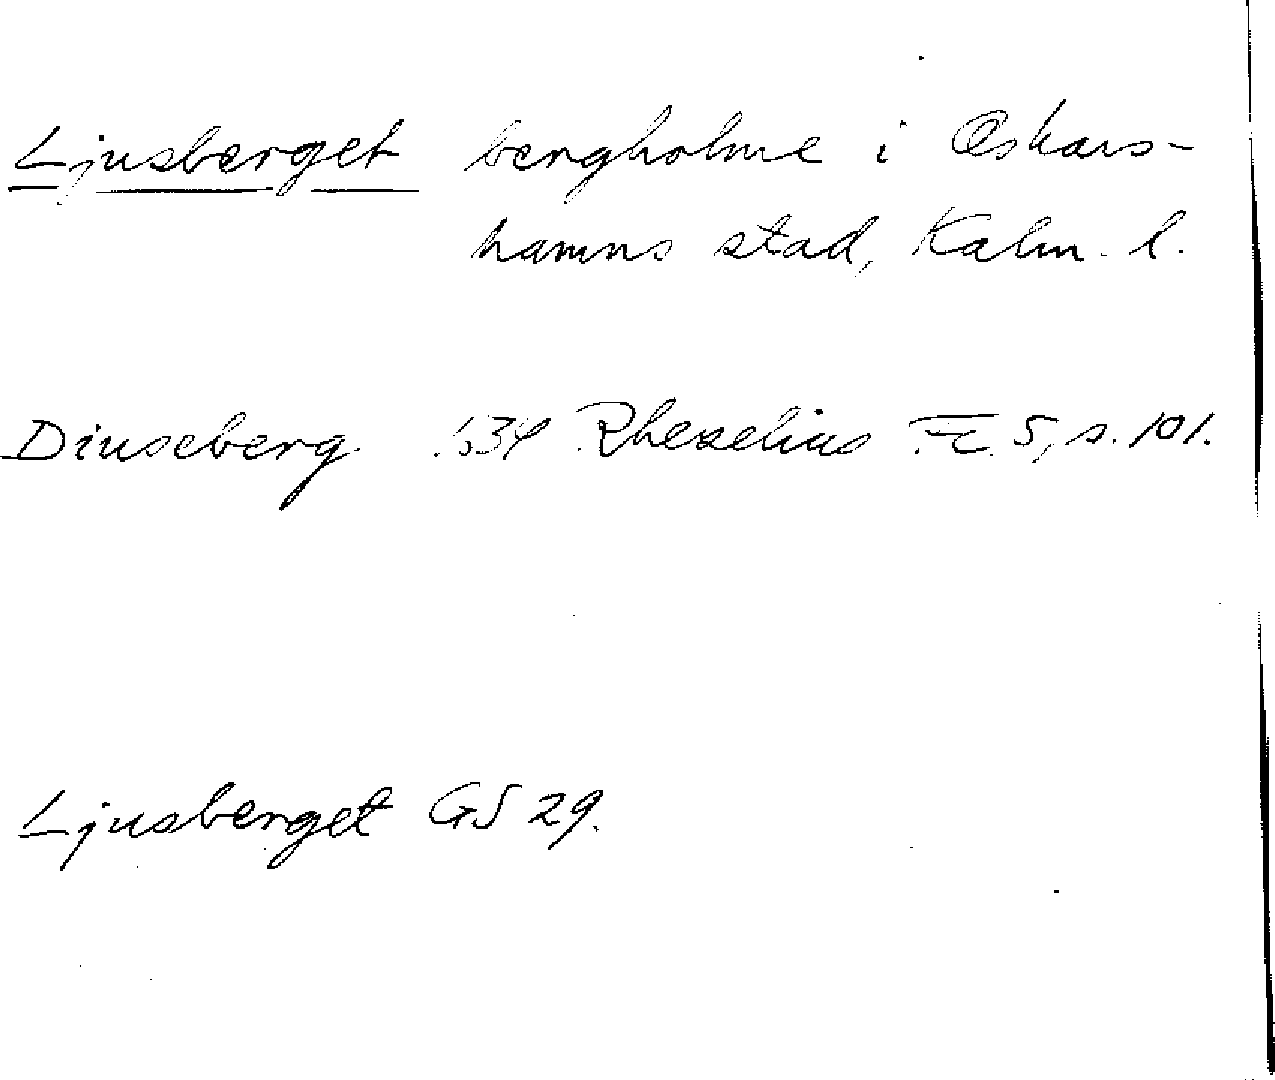 Ljusberget bergholme i Oskars-
hamns stad, Kalm. l.
Diuseberg 1634 Rhezelius Fc 5, s. 101.
Ljusberget GS 29.